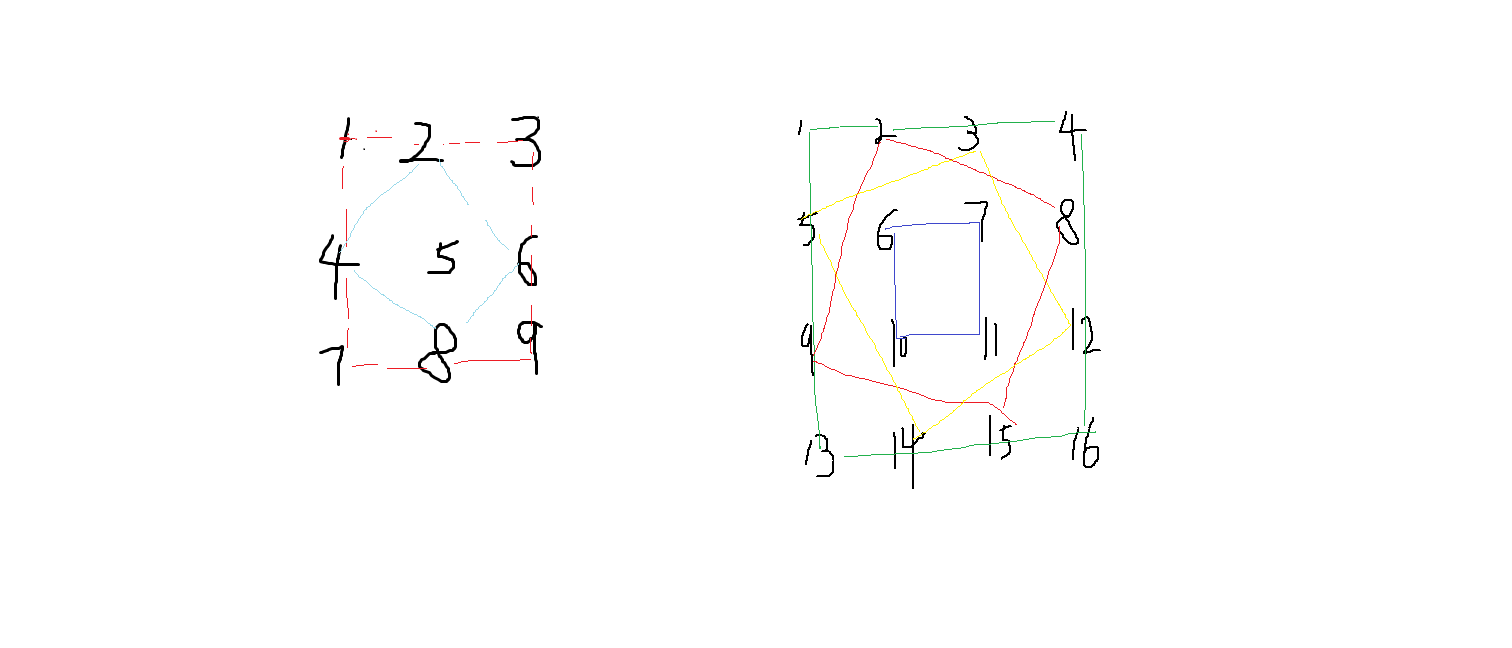 1 2 3
4 5 6
7 8 9
1 2 3 4
5 6 7 8
9 10 11 12
13 14 15 16